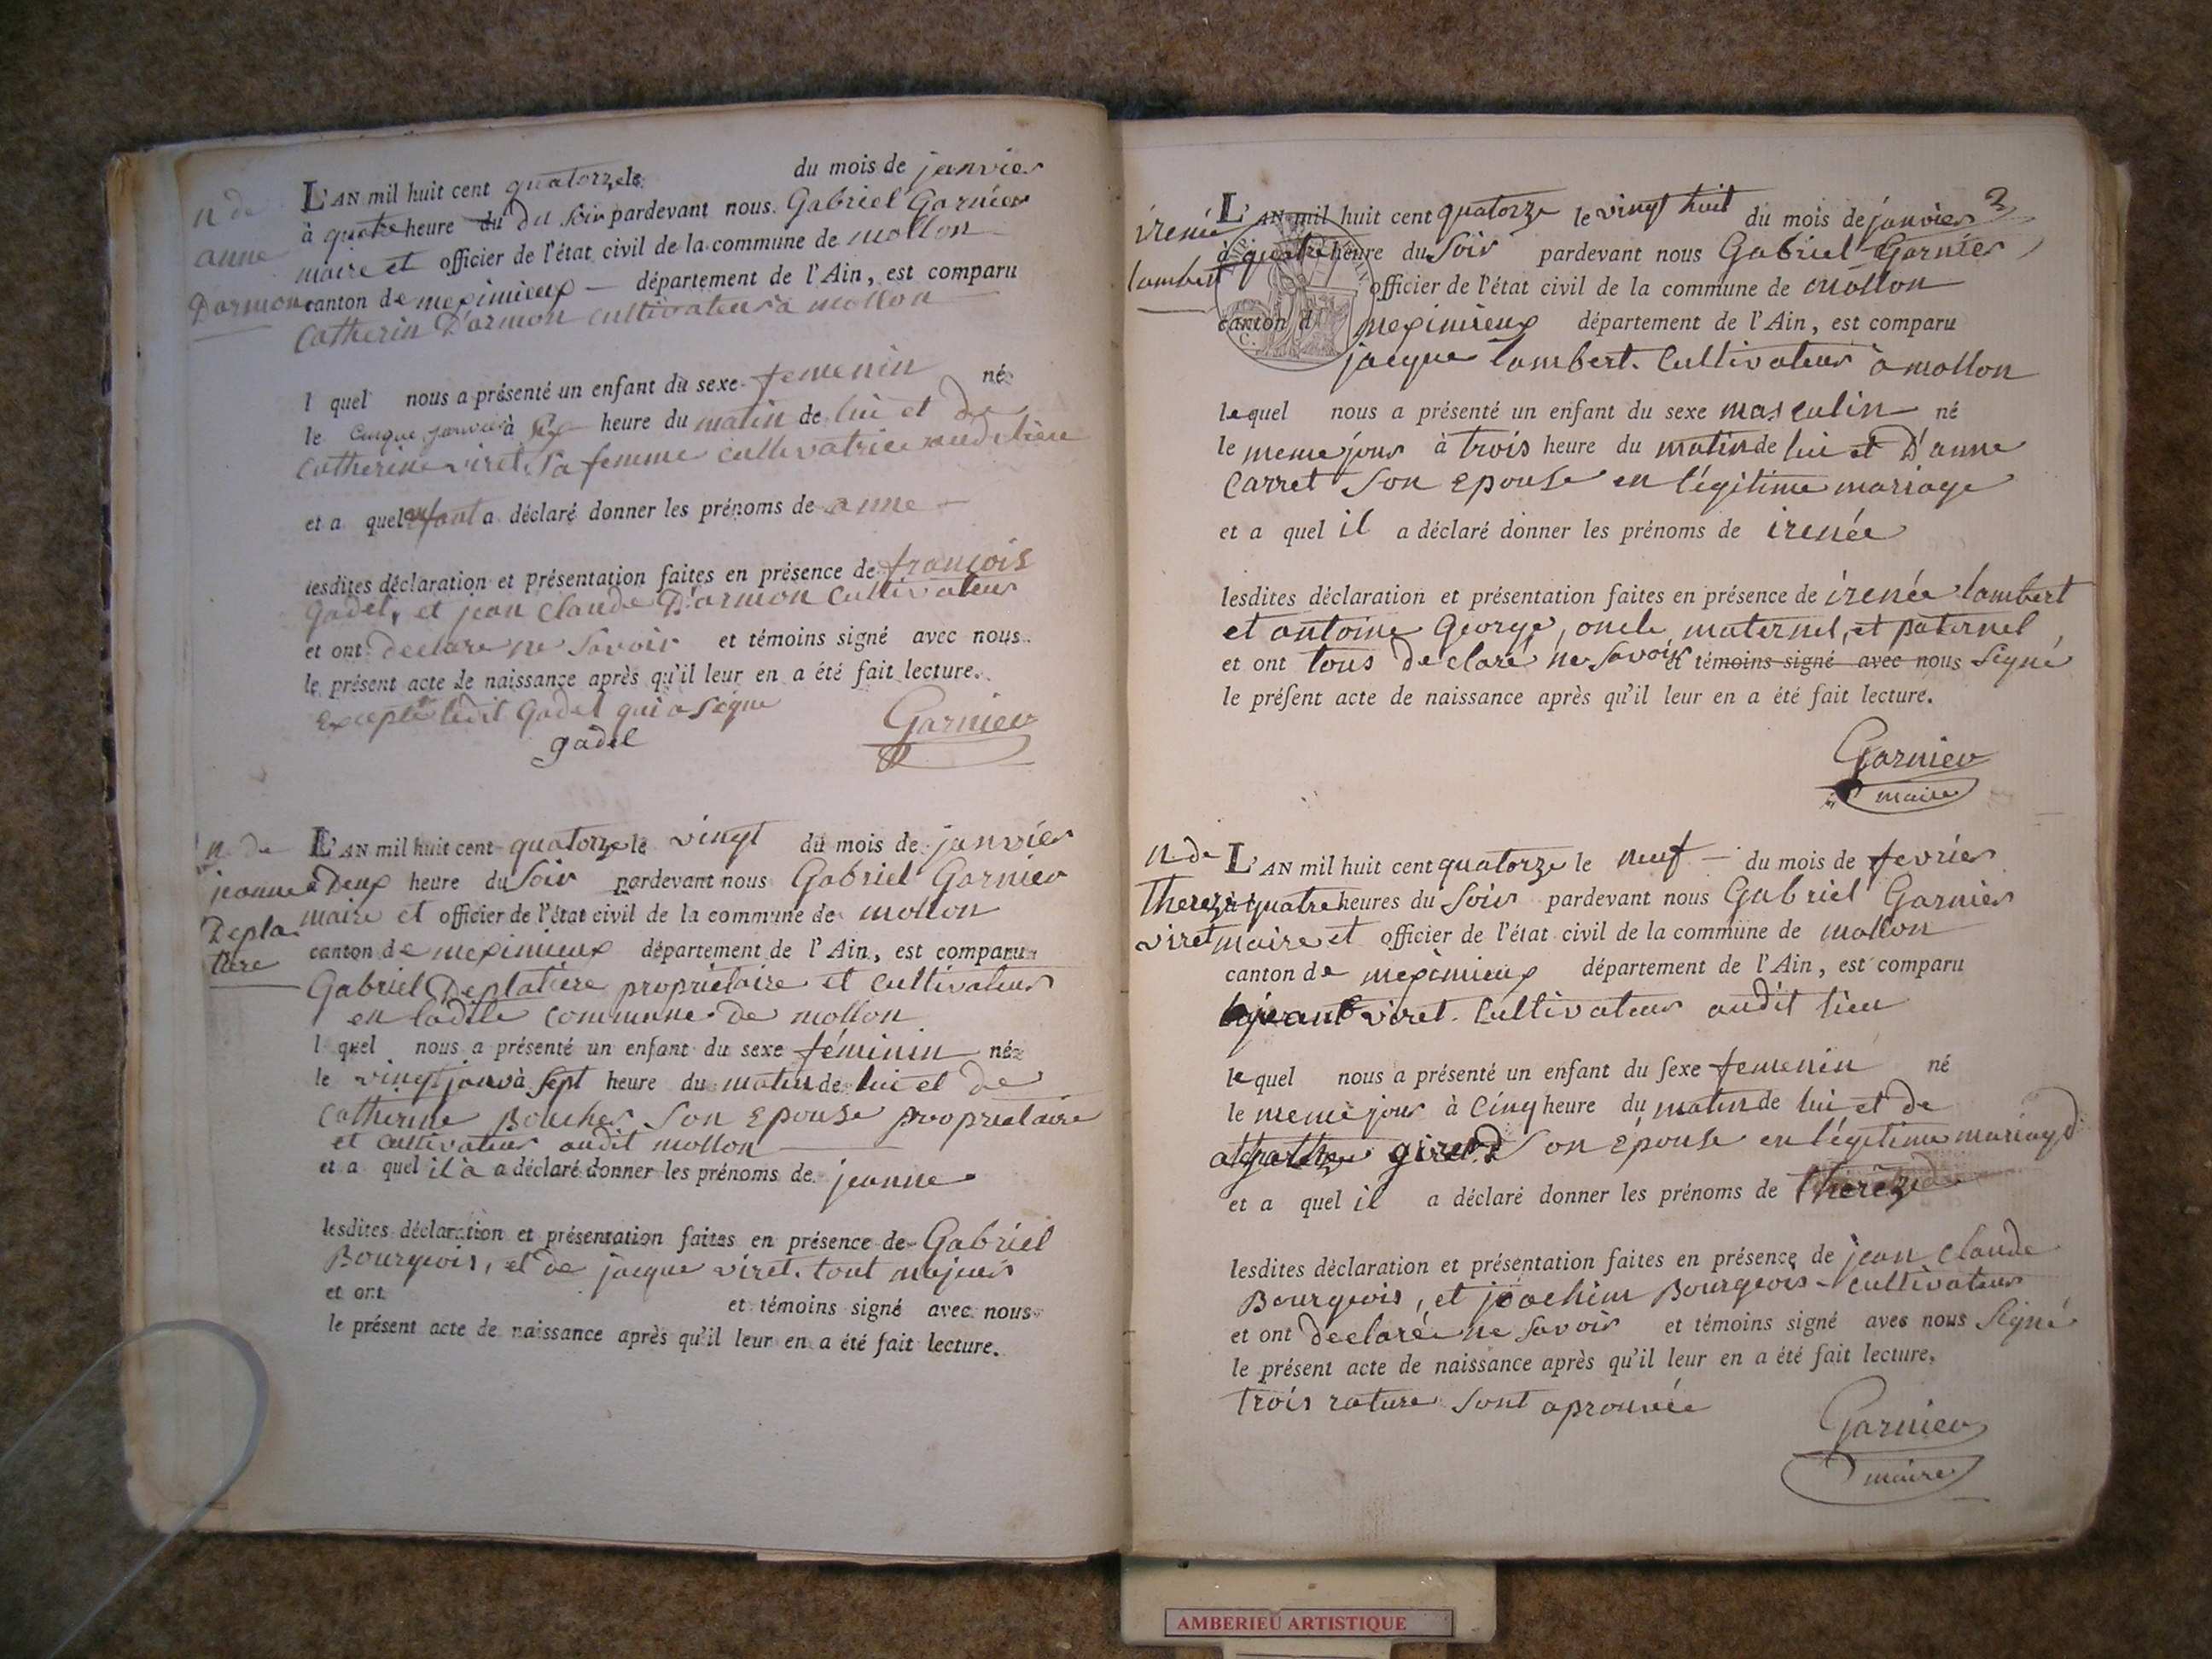 n de
anne
Darmon
L'AN mil huit cent quatorze le du mois de janvier
à quatre heure du du soir pardevant nous Gabriel Garnier
maire et officier de l'état civil de la commune de mollon
canton de meximieux département de l'Ain, est comparu
Catherin D'armon cultivateur à mollon
l quel nous a présenté un enfant du sexe femenin né
le cinque janvier à six heure du matin de lui et de
Catherine viret sa femme cultivatrice audit lieu
et a quel enfant a déclaré donner les prénoms de anne
lesdites déclaration et présentation faites en présence de françois
gadel, et jean claude D'armon cultivateur
et ont declare ne savoir et témoins signé avec nous
le présent acte de naissance après qu'il leur en a été fait lecture.
Excepté ledit gadel qui a signé
gadel Garnier
n de
jeanne
Depla
tiere
L'AN mil huit cent quatorze le vingt du mois de janvier
à Deux heure du soir pardevant nous Gabriel Garnier
maire et officier de l'état civil de la commune de mollon
canton de meximieux département de l'Ain, est comparu
Gabriel Deplatiere propriétaire et cultivateur
en ladite commune de mollon
l quel nous a présenté un enfant du sexe féminin né
le vingt janv à sept heure du matin de lui et de
Catherine Boucher son epouse propriétaire
et cultivateur audit mollon
et a quel il a a déclaré donner les prénoms de jeanne
lesdites déclaration et présentation faites en présence de Gabriel
Bourgeois, et de jacque viret. tout majeurs
et ont et témoins signé avec nous
le présent acte de naissance après qu'il leur en a été fait lecture.
3
irenée
lambert
L'AN mil huit cent quatorze le vingt huit du mois de janvier
à quatre heure du soir pardevant nous Gabriel Garnier
officier de l'état civil de la commune de mollon
canton d meximieux département de l'Ain, est comparu
jacque lambert. Cultivateur à mollon
lequel nous a présenté un enfant du sexe masculin né
le meme jour à trois heure du matin de lui et D'anne
Carret son epouse en légitime mariage
et a quel il a déclaré donner les prénoms de irenée
lesdites déclaration et présentation faites en présence de irenée lambert
et antoine George, oncle maternel, et paternel
et ont tous declaré ne savoir et témoins signé avec nous signé
le présent acte de naissance après qu'il leur en a été fait lecture.
Garnier
maire
n de
Thereze
viret
L'AN mil huit cent quatorze le neuf du mois de fevrier
à quatre heures du soir pardevant nous Gabriel Garnier
maire et officier de l'état civil de la commune de mollon
canton de meximieux département de l'Ain, est comparu
viret. Cultivateur audit lieu
lequel nous a présenté un enfant du sexe femenin né
le meme jour à cinq heure du matin de lui et de
son épouse en légitime mariage
et a quel il a déclaré donner les prénoms de thereze
lesdites déclaration et présentation faites en présence de jean claude
Bourgeois, et joachim Bourgeois cultivateur
et ont declarée ne savoir et témoins signé avec nous signé
le présent acte de naissance après qu'il leur en a été fait lecture.
trois rature sont aprouvée
Garnier
maire
AMBERIEU ARTISTIQUE